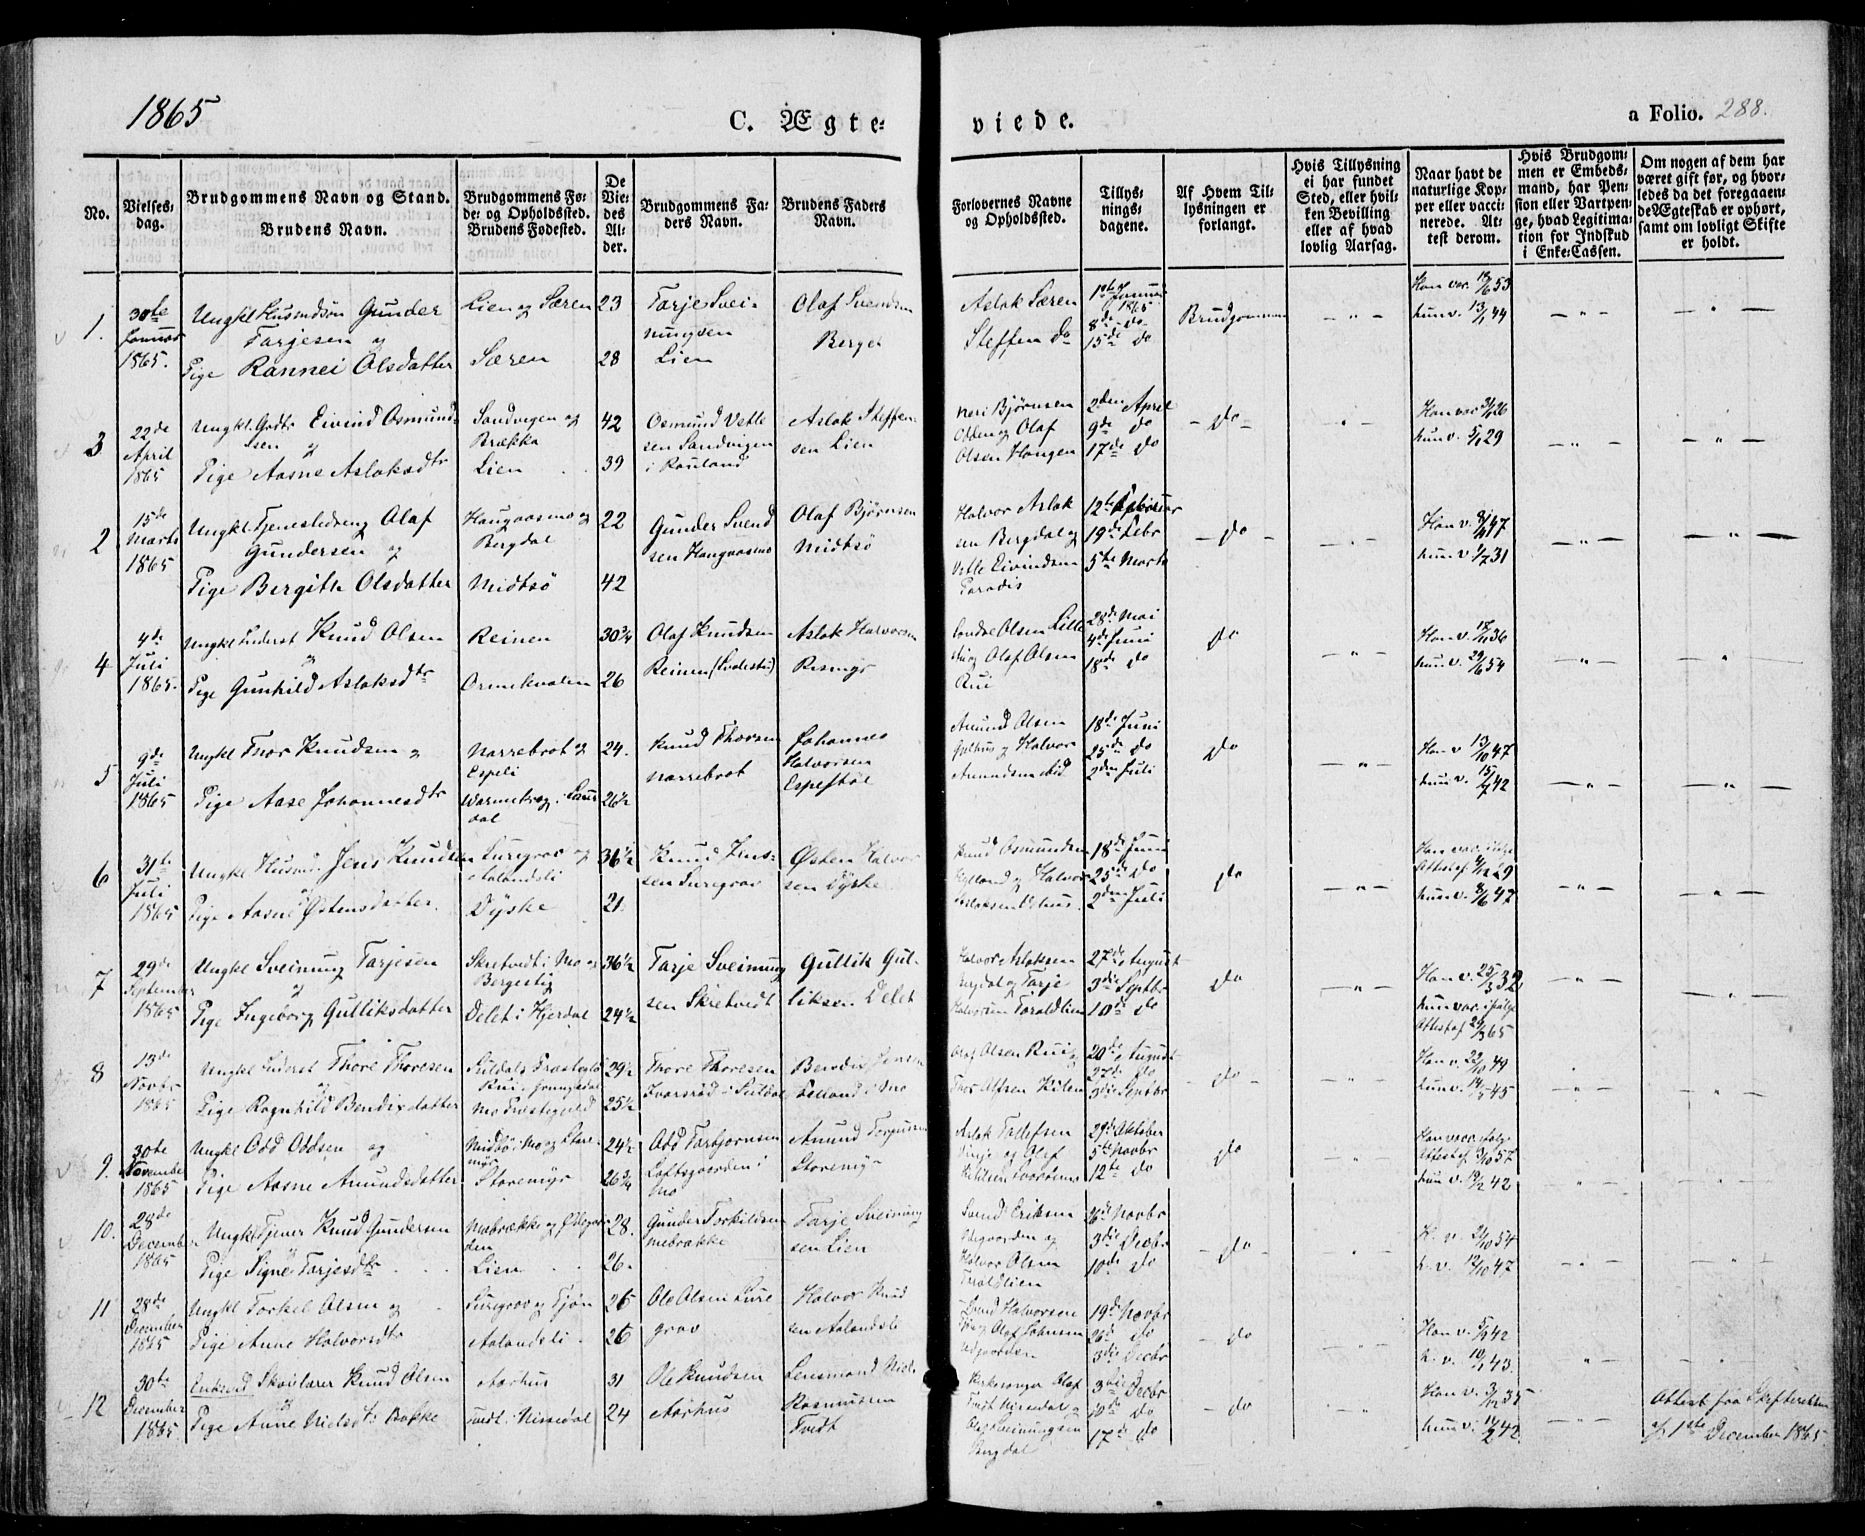 1865
C. Ægte-
viede.
a Folio. 288.
No.
Vielses-
dag.
Brudgommens Navn og Stand.
Brudens Navn.
Brudgommens Fø-
de- og Opholdssted.
Brudens Fødested.
De
Vie-
des
Al-
der.
Brudgommens Fa-
ders Navn.
Brudens Faders
Navn.
Forlovernes Navne
og Opholdssted.
Tillys-
nings-
dagene.
Af Hvem Til-
lysningen er
forlangt.
Hvis Tillysning
ei har fundet
Sted, eller hvil-
ken Bevilling
eller af hvad
lovlig Aarsag.
Naar havt de
naturlige Kop-
per eller vacci-
nerede. At-
test derom.
Hvis Brudgom-
men er Embeds-
mand, har Pen-
sion eller Vartpen-
ge, hvad Legitima-
tion for Indskud
i Enke-Cassen.
Om nogen af dem har
været gift før, og hvor-
ledes da det foregaaen-
de Ægteskab er ophørt,
samt om lovligt Skifte
er holdt.
1.
30te
Januar
1865.
Ungkl Husmdsøn Gunder
Tarjesen og
Pige Rannei Olsdatter
Lien og Særen
Særen
23
28
Tarje Svei-
nungsen
Lien
Olaf Svendsen
Berget
Aslak Særen
Steffen Do
1ste Januar
1865
8de do
15de do
Brudgommen
Han vac. 19/6 53
hun v. 13/1 44
3
22de
April
1865
Ungkl. Godtr Eivind Osmund-
sen og
Pige Aasne Aslaksdtr
Sandvigen og
Brække
Lien
42
39
Osmund Vetle
sen Sandvigen
i Rauland
Aslak Steffen-
sen Lien
Neri Bjørnsen
Odden og Olaf
Olsen Haugen
2den April
9de do
17de do
do
Han vac 3/1 26
hun v. 5/1 29
2
15de
Marts
1865
Ungkl. Tjenestedreng Olaf
Gundersen og
Pige Bergithe Olsdatter
Haugaasmo og
Bergdal
Midtsø
22
42
Gunder Svend
sen Haugaasmo
Olaf Bjørnsen
Midtsø
Halvor Aslak
sen Bergdal og
Vetle Eivindsen
Paradis
12te Februar
19de Febr
5te Marts
do
Han v. 8/9 47
hun v. 1/7 31
4
4de
Juli
1865.
Ungkl Inderst Knud Olsen
og
Pige Gunhild Aslaksdtr
Reinen
Ormekvalen
30 3/4
26
Olaf Knudsen
Reinen
Aslak Halvorsen
Rismyr
Olsen Lille
og Olaf Olsen
Rui
28de Mai
4de Juni
18de do
do
Han v. 18/11 36
hun v. 29/6 54
5
9de
Juli
1865
Ungkl Thor Knudsen og
Pige Aase Johannesdtr
Narrebrot og
Espeli
24.
26 1/2
Knud Thorsen
Narrebrot
Johannes
Halvorsen
Espestøl
Amund Olsen
og Halvor
Amundsen ibid
18de Juni
25de do
2den Juli
do
Han v 13/10 47
hun v. 15/7 42
6
31te
Juli
1865
Ungkl Husmd. Jens Knudsen
og
Pige Aasne Østensdatter.
Luregrav og
Aalandsli
Dyske
36 1/2
21.
Knud Jens-
sen Luregrav
Østen Halvor
sen Dyske
Knud Osmundsen
og Halvor
18de Juni
25de do
2den Juli
do
Han vac. ifølge
Attest af 9/12 29
hun v. 8/6 47
7
29de
September
1865
Ungkl Sveinung Tarjesen
og
Pige Ingeborg Gulliksdatter
Skretvedt i Mo og
Bergestig
Delet i Hjerdal
36 1/2
24 1/2
Tarje Sveinung
sen Skretvedt
Gullik Gul-
liksen Delet
Halvor Aslaksen
Bergdal og Tarje
Halvorsen Taraldlien
27de August
3die Septbr
10de do
do
Han v. 25/3 32
hun vac. ifølge
Attest af 29/3 65
8
13de
Novbr
1865
Ungkl Inderst Thore Thoresen
og
Pige Ragnhild Bendixdatter
Suldals Præstegld
Mo Præstegjeld
29 1/2
25 1/2
Thore Thoresen
Ivarsrød i Suldal
Bendix Jensen
Felland i Mo
Olaf Olsen Rui og
Thor Olsen Kilen
20de August
27de do
3die Septbr
do
Han v. 22/10 49
hun v. 14/5 45
9.
30te
November
1865
Ungkl Odd Oddsen og
Pige Aasne Amundsdatter
Midbø i Mo og Store-
myr
Storemyr
24 1/2
26 3/4
Odd Tarbjornsen
Loftsgaarden i
Mo
Amund Torjusen
Storemyr
Aslak Tollefsen
og Olaf
29de Oktober
5te Novbr
12te do
do
Han vac. ifølge
Attest af 3/10 57
hun v. 19/2 42
10.
28de
December
1865
Ungkl Tjener Knud Gundersen
og
Pige Signe Tarjesdtr
Mobrække og Ødegaar-
den
Lien
28.
26.
Gunder Torkildsen
Mebrække
Tarje Sveinung
sen Lien
Svend Eriksen
Ødegaarden og
Halvor Olsen
Taraldlien
26de Novbr
3die Decbr
10de do
do
H. v. 21/10 54
h. v. 12/10 47
11
28de
December
1865
Ungkl Torkel Olsen og
Pige Anne Halvorsdtr
Luregrav og Tjøn
Aalandsli
26
26
Ole Olsen Lure
grav
Halvor Knud
sen Aalandsli
Svend Halvorsen
og Olaf Johnsen
Ødegaarden
19de Novbr
26de do
3die Decbr
do
Han v. 5/9 42
h. v. 10/1 43.
12
30te
December
1865
Enkemd Skolelærer Knud Olsen
og
Pige Anne Nielsdtr Bakke
Aarhus
Tvedt i Nissedal
31
24
Ole Knudsen
Aarhus
Lensmand Niels
Rasmussen
Tvedt
Kirkesanger Olaf
Tvedt Nissedal og
Olaf Sveinungsen
Bergdal
3die Decbr
10de do
17de do
do
Han v. 3/12 35
hun v. 14/2 42.
Attest fra Skifteretten
af 1ste December 1865.